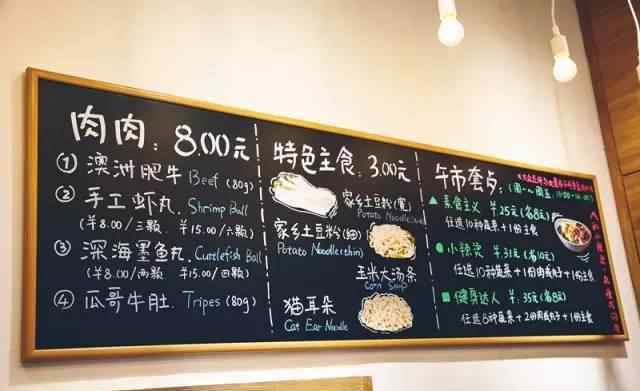 肉肉: 8.00元
① 澳洲肥牛 Beef (80g)
② 手工虾丸. Shrimp Ball
(¥8.00/三颗 ¥15.00/六颗)
③ 深海墨鱼丸. Cuttlefish Ball
(¥8.00/两颗 ¥15.00/四颗)
④ 瓜哥牛肚. Tripes (80g)
特色主食: 3.00元
家乡土豆粉(宽)
Potato Noodle
家乡土豆粉(细)
Potato Noodle(thin)
玉米大汤条
Corn Soup
猫耳朵
Cat Ear Noodle
午市套餐:
(周一~周五
▲ 素食主义 ¥.25元(省8元)
任选10种蔬菜+1份主食
● 小辣烫 ¥.31元(省10元)
任选10种蔬菜+1份肉或丸子+1份主食
■ 健身达人 ¥.35元(省8元)
任选8种蔬菜+2份肉或丸子+1份主食